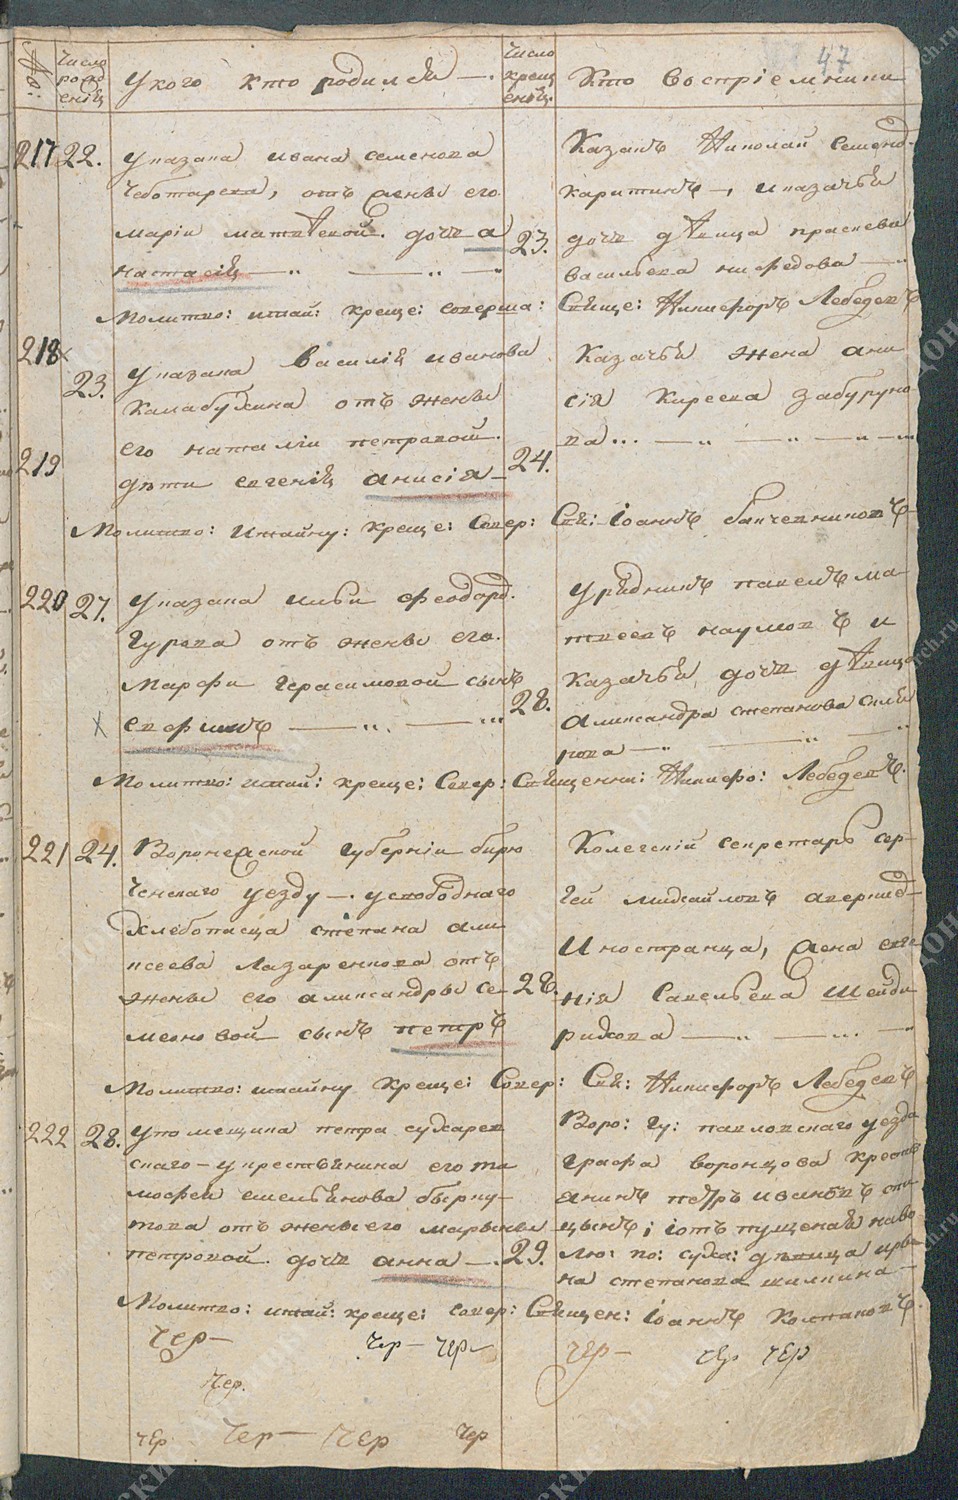 47
№: Число рожденія У кого кто родился —. Число крещенія. Кто восприемники
217 22. У казака ивана семенова
Чеботарева, отъ жены его
маріи матвѣевой. дочь а
настасія — „ — „ — „
23.
Казакъ Николай семено
харитинъ —, и казачья
дочь дѣвица прасковья
васильева нифедова — „
Молитво: имай: креще: соверша: Свяще: Никифоръ Лебедевъ
218 23. У казака Василія иванова
Калабухина отъ жены
219 его наталіи петровой.
дѣти евгенія анисія —
24.
Казачья жена ани
сія Киреева Забуруно
ва ... — „ — „ — „ — „
Молитво: Имайну: креще: Совер: Свя: Іоаннъ
220 27. У казака ильи феодор.
Гурева отъ жены его.
Марфы Герасимовой сынъ
евфимъ — „ — „
28.
Урядникъ павелъ ма
твеевъ наумовъ и
казачья дочь дѣвица
Александра степанова
рова — „ — „ — „
Молитво: имай: креще: Совер: Священни: Никифо: Лебедевъ.
221 24. Воронежской Губерніи бирю
ченскаго уезду —. у свободнаго
Хлебопасца степана али
ксеева Лазаренкова отъ
жены его александры се
меновой сынъ петръ
28.
Колегскій секретарь сер-
гей михайловъ аверкіе
Иностранца, жена евге
нія Савельева Шейди
рихова — „ — „ — „
Молитво: имайну креще: Совер: Свя: Никифоръ Лебедевъ
222 28. У помещика петра сухарев
скаго — у крестьянина его ти
мофея емельянова
това отъ жены его марьяны
петровой. дочь анна —.
29.
Воро: Гу: павловскаго уезда
графа воронцова кресть
янинъ петръ ивановъ
цынъ; і отъ пущеная на во
лю: по: суха: дѣвица ири
на степанова шилкина —
Молитво: имай: креще: совер: Священ: Іоаннъ Колпаковъ.
чер — чер — чер — чер — чер чер
чер.
чер чер — чер чер